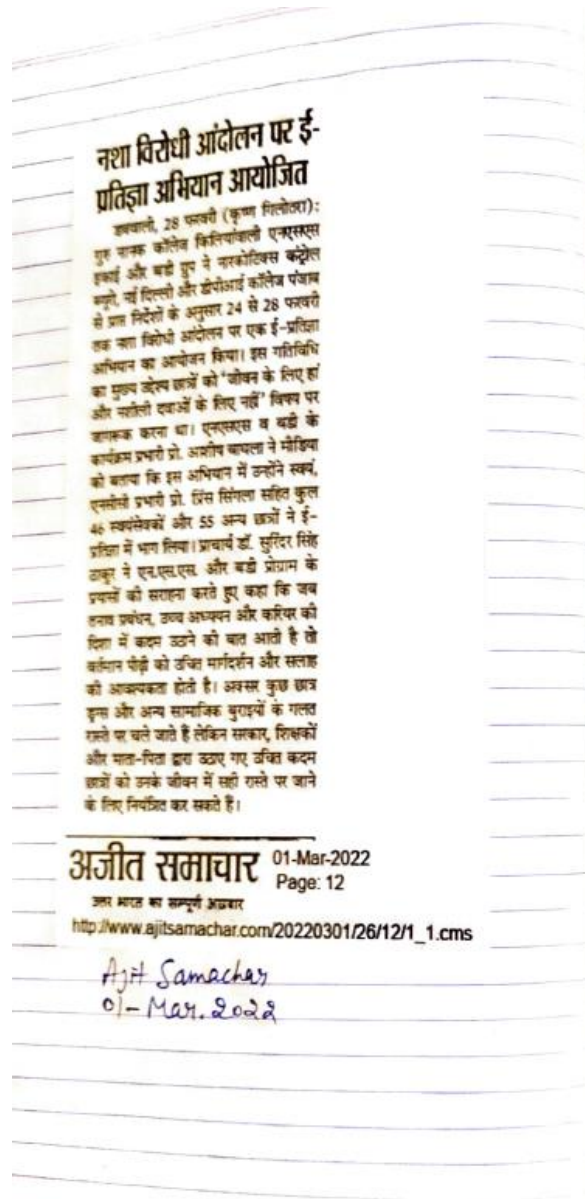 नशा विरोधी आंदोलन पर ई-
प्रतिज्ञा अभियान आयोजित
डबवाली, 28 फरवरी (कृष्ण गिलोतरा):
गुरु नानक कॉलेज किलियांवाली एनएसएस
इकाई और बडी ग्रुप ने नारकोटिक्स कंट्रोल
ब्यूरो, नई दिल्ली और डीपीआई कॉलेज पंजाब
से प्राप्त निर्देशों के अनुसार 24 से 28 फरवरी
तक नशा विरोधी आंदोलन पर एक ई-प्रतिज्ञा
अभियान का आयोजन किया। इस गतिविधि
का मुख्य उद्देश्य छात्रों को "जीवन के लिए हां
और नशीली दवाओं के लिए नहीं" विषय पर
जागरूक करना था। एनएसएस व बडी के
कार्यक्रम प्रभारी प्रो. आशीष बाघला ने मीडिया
को बताया कि इस अभियान में उन्होंने स्वयं,
एनसीसी प्रभारी प्रो. प्रिंस सिंगला सहित कुल
46 स्वयंसेवकों और 55 अन्य छात्रों ने ई-
प्रतिज्ञा में भाग लिया। प्राचार्य डॉ. सुरिंदर सिंह
ठाकुर ने एन.एस.एस. और बडी प्रोग्राम के
प्रयासों की सराहना करते हुए कहा कि जब
तनाव प्रबंधन, उच्च अध्ययन और करियर की
दिशा में कदम उठाने की बात आती है तो
वर्तमान पीढ़ी को उचित मार्गदर्शन और सलाह
की आवश्यकता होती है। अक्सर कुछ छात्र
ड्रग्स और अन्य सामाजिक बुराइयों के गलत
रास्ते पर चले जाते हैं लेकिन सरकार, शिक्षकों
और माता-पिता द्वारा उठाए गए उचित कदम
छात्रों को उनके जीवन में सही रास्ते पर जाने
के लिए नियंत्रित कर सकते हैं।
अजीत समाचार 01-Mar-2022
Page: 12
उत्तर भारत का सम्पूर्ण अखबार
http://www.ajitsamachar.com/20220301/26/12/1_1.cms
Ajit Samachar
01-Mar.2022